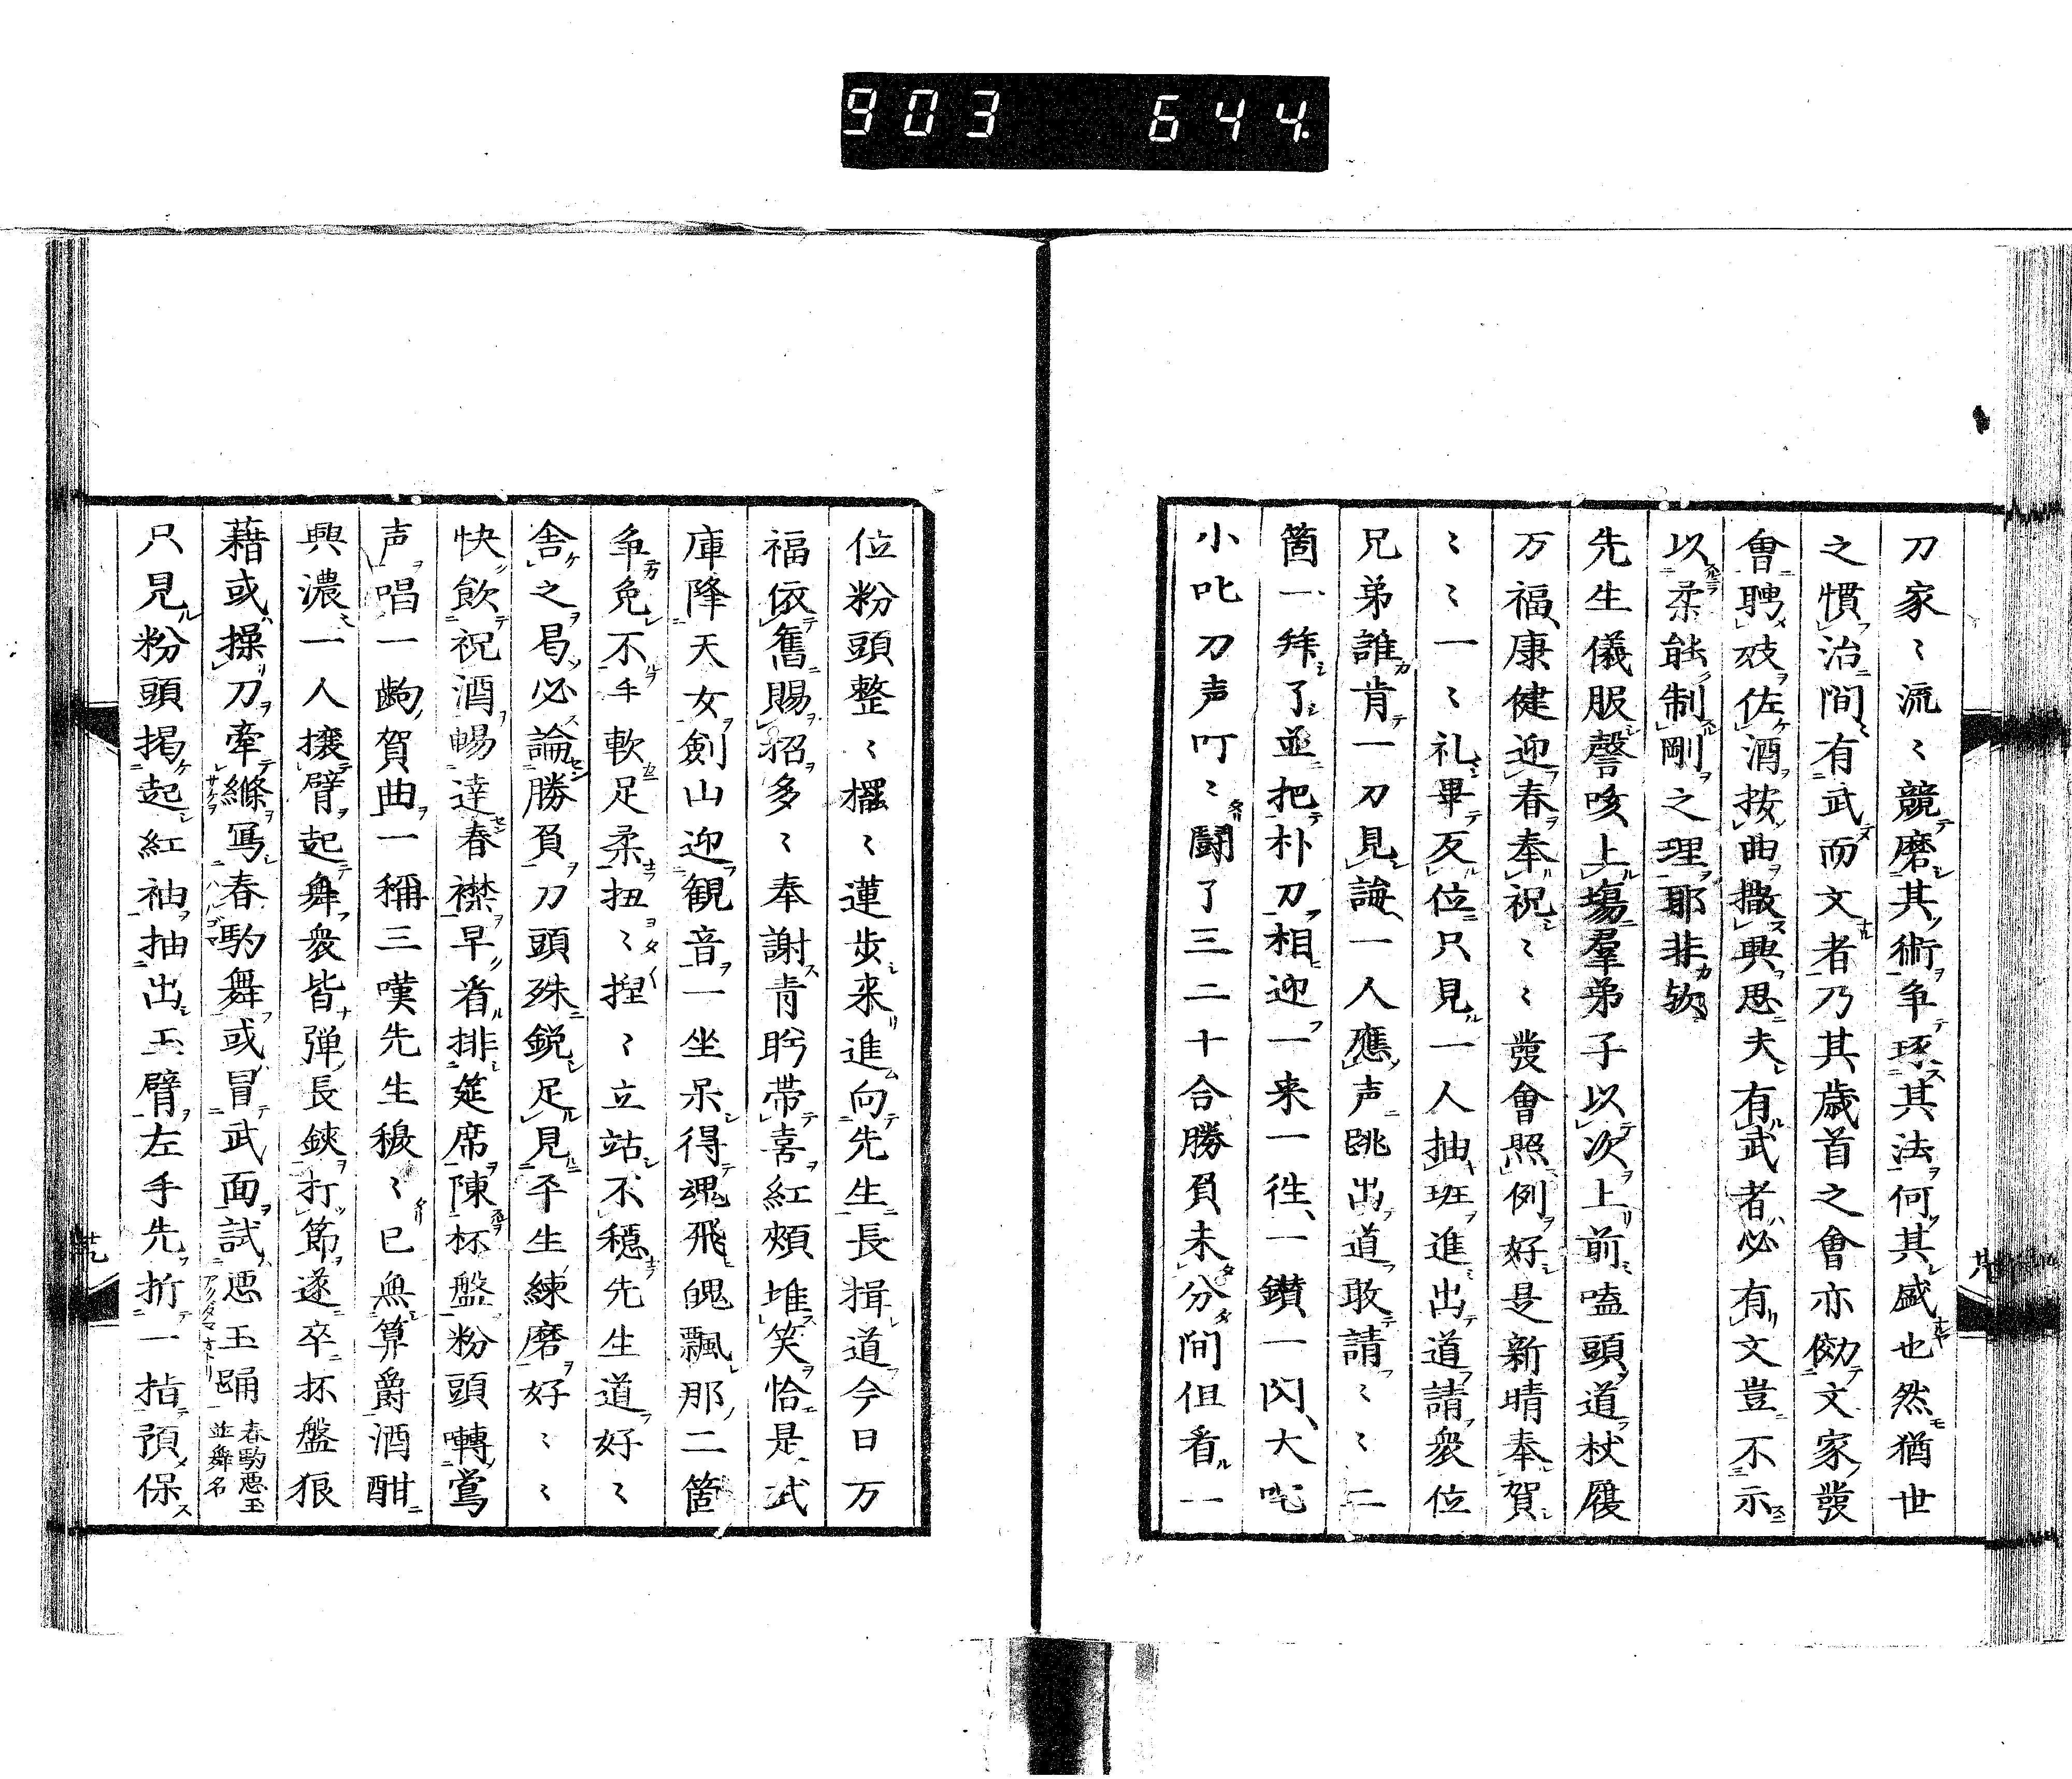 903 644.
刀家〻流〻競磨其術争琢其法何其盛也然猶世
之慣治間有武而文者乃其歳首之會亦傚文家發
會聘妓佐酒按曲撒興思夫有武者必有文豈不示
以柔能制剛之理耶非欤
先生儀服謦咳上場羣弟子以次上前嗑頭道杖履
万福康健迎春奉祝〻〻發會照例好是新晴奉賀
〻〻一〻礼畢反位只見一人抽班進出道請衆位
兄弟誰肯一刀見誨一人應声跳出道敢請〻〻二
箇一拜了並把朴刀相迎一来一往一鑚一閃大叱
小叱刀声叮〻闘了三二十合勝負未分間但看一
位粉頭整〻擺〻蓮歩来進向先生長揖道今日万
福依舊賜招多〻奉謝青眄帯喜紅頰堆笑恰是武
庫降天女劍山迎観音一坐呆得魂飛魄飄那二箇
争免不手軟足柔扭〻捏〻立站不穏先生道好〻
舎之曷必論勝負刀頭殊鋭足見平生練磨好〻〻
快飲祝酒暢達春襟早看排筵席陳杯盤粉頭囀鴬
声唱一齣賀曲一稱三嘆先生穏〻已無算爵酒酣
興濃一人攘臂起舞衆皆弾長鋏打節遂卒杯盤狼
藉或操刀牽絛冩春駒舞或冒武面試悪玉踊春駒悪玉並舞名
只見粉頭掲起紅袖抽出玉臂左手先折一指預保